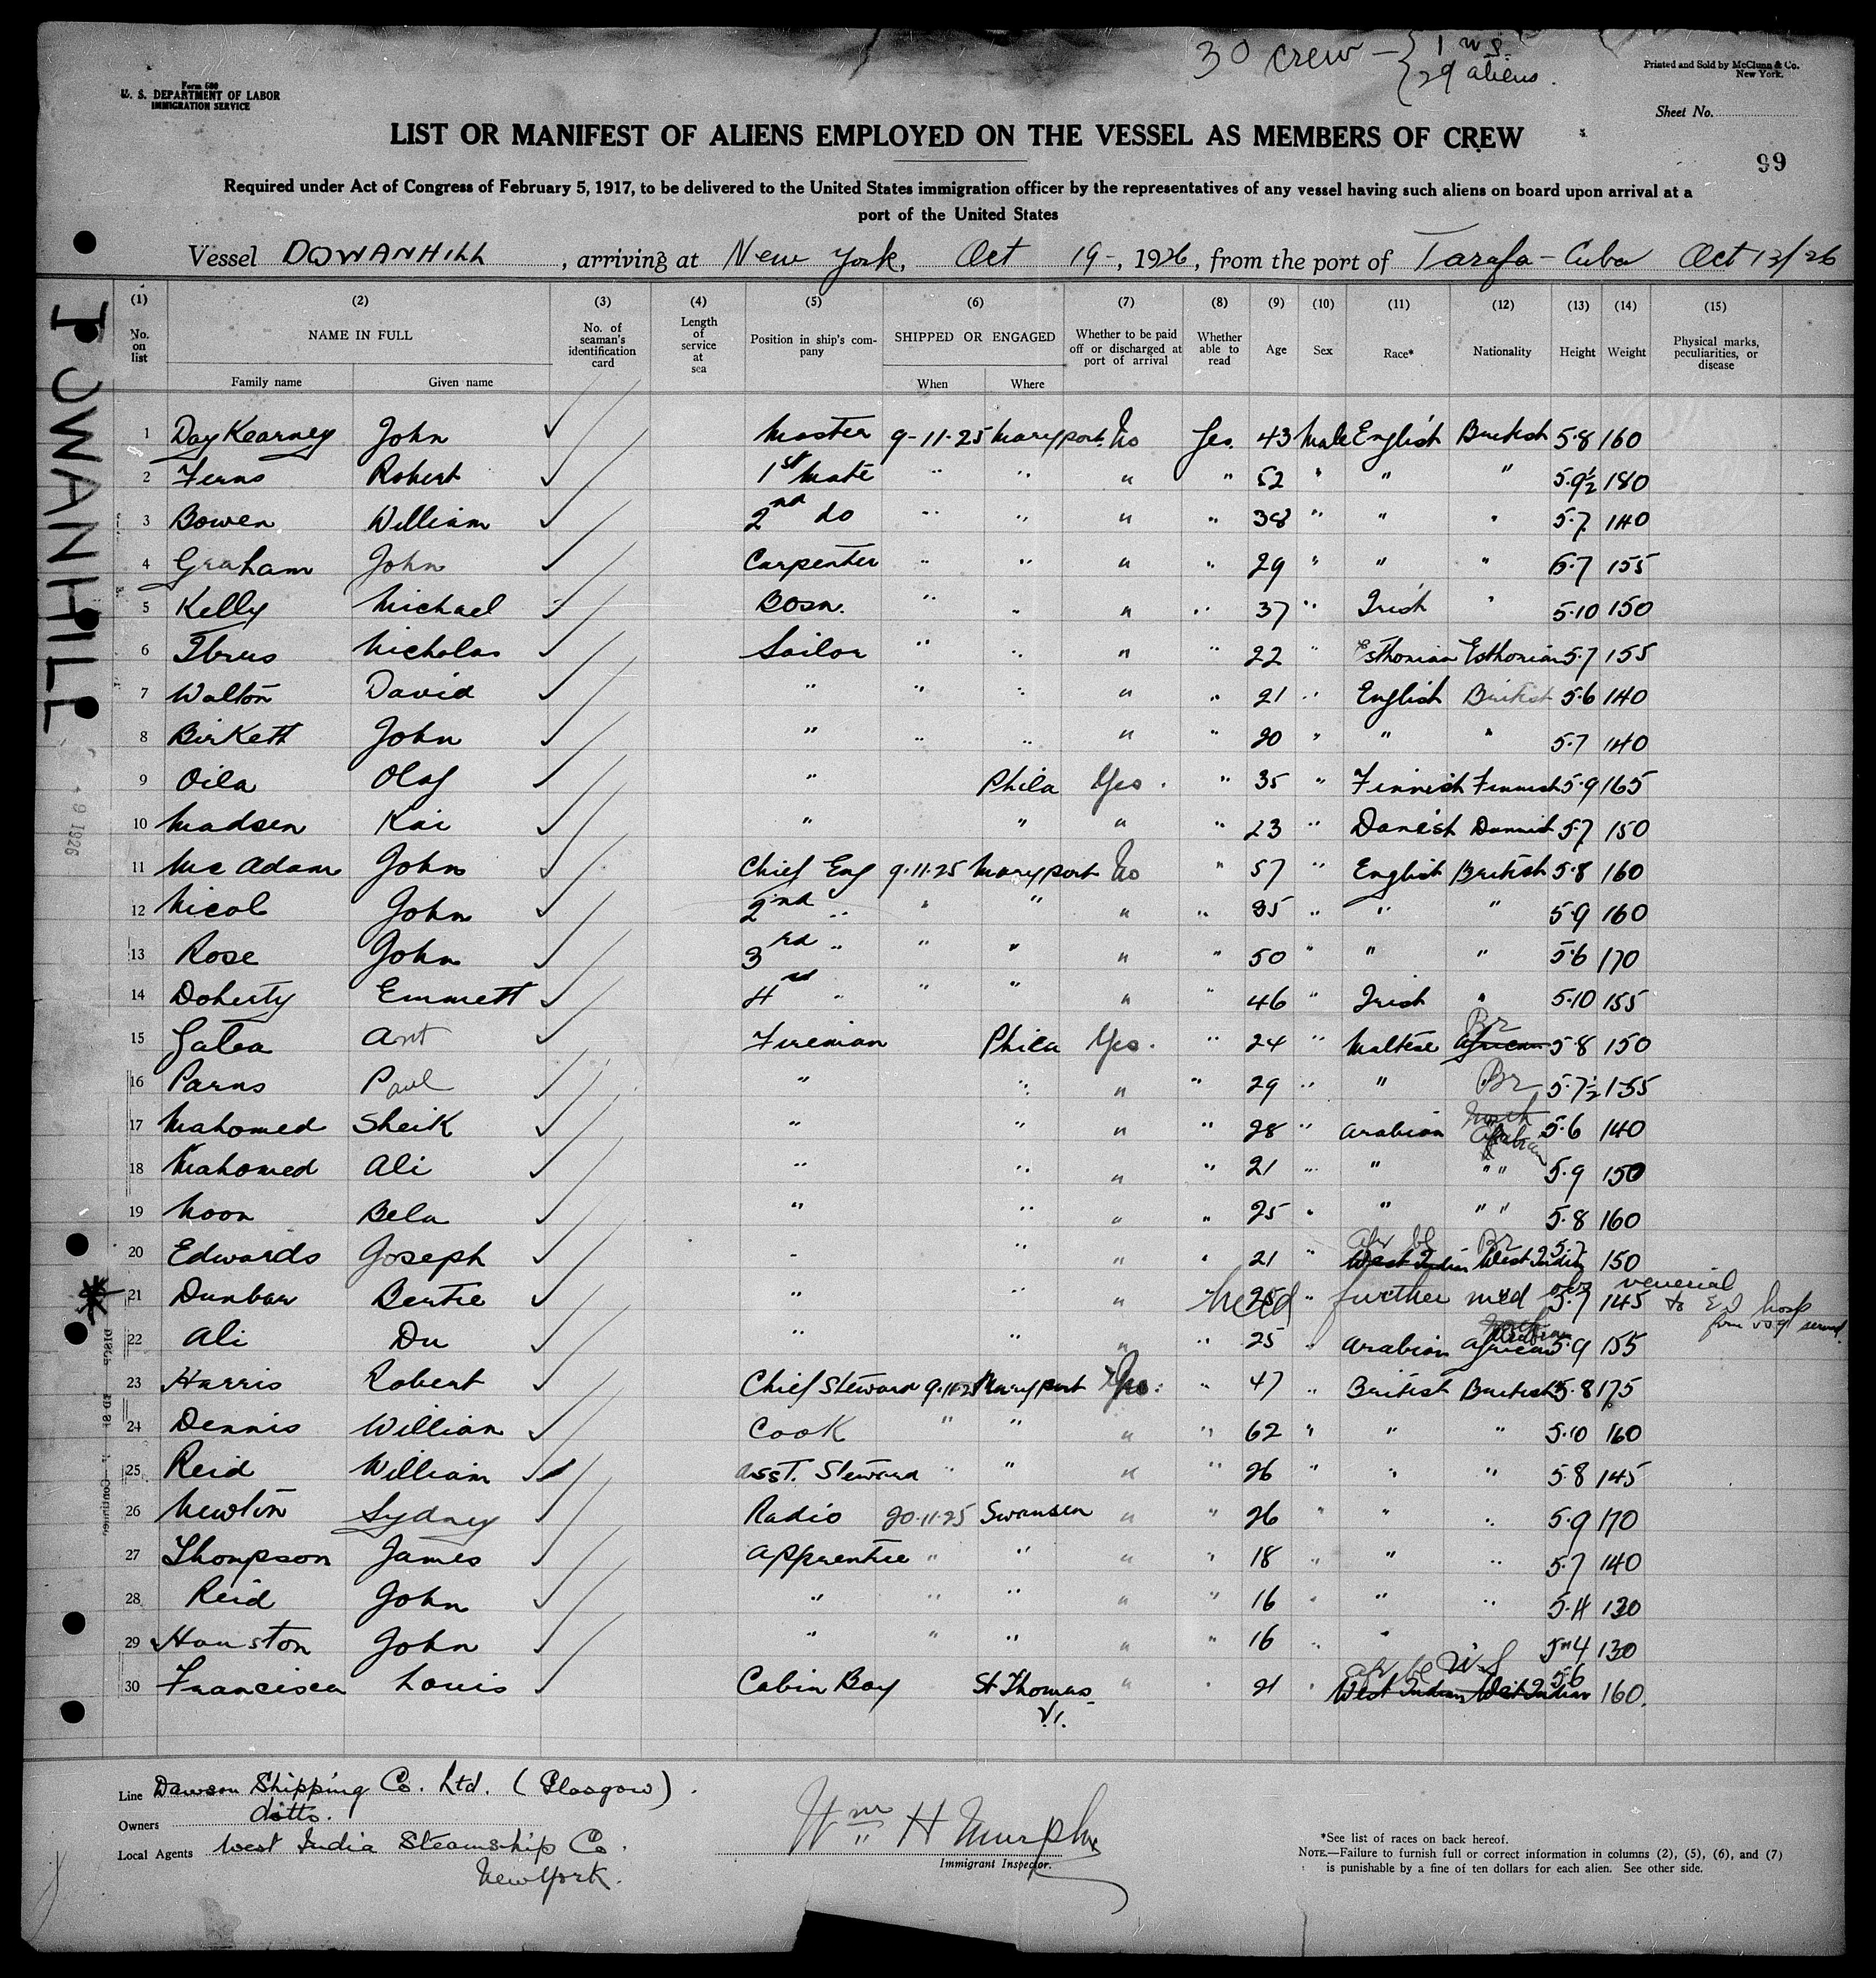 30 crew - { 1 U.S.
29 aliens.
Printed and Sold by McClunn & Co.
New York.
Form 680
U. S. DEPARTMENT OF LABOR
IMMIGRATION SERVICE
Sheet No.
LIST OR MANIFEST OF ALIENS EMPLOYED ON THE VESSEL AS MEMBERS OF CREW
99
Required under Act of Congress of February 5, 1917, to be delivered to the United States immigration officer by the representatives of any vessel having such aliens on board upon arrival at a
port of the United States
Vessel DOWANHILL, arriving at New York, Oct 19-, 1926, from the port of Tarafa - Cuba Oct 13/26
DOWANHILL
(1) (2) (3) (4) (5) (6) (7) (8) (9) (10) (11) (12) (13) (14) (15)
No. on list
NAME IN FULL
Family name Given name
No. of seaman's identification card
Length of service at sea
Position in ship's company
SHIPPED OR ENGAGED
When Where
Whether to be paid off or discharged at port of arrival
Whether able to read
Age Sex Race* Nationality Height Weight
Physical marks, peculiarities, or disease
1 Day Kearney John Master 9-11-25 Maryport No Yes. 43 Male English British 5.8 160
2 Ferns Robert 1st Mate " " " " 52 " " " 5.9½ 180
3 Bowen William 2nd do " " " " 38 " " " 5.7 140
4 Graham John Carpenter " " " " 29 " " " 5.7 155
5 Kelly Michael Bosn. " " " " 37 " Irish " 5.10 150
6 Nicholas Sailor " " " " 22 " Esthonian Esthonian 5.7 155
7 Walton David " " " " " 21 " English British 5.6 140
8 Birkett John " " " " " 20 " " " 5.7 140
9 Oila Olaf " Phila Yes. " 35 " Finnish Finnish 5.9 165
10 Madsen Kai " " " " 23 " Danish Danish 5.7 150
11 McAdam John Chief Eng 9.11.25 Maryport No " 57 " English British 5.8 160
12 Nicol John 2nd " " " " " 35 " " " 5.9 160
13 Rose John 3rd " " " " " 50 " " " 5.6 170
14 Doherty Emmett 4 " " " " " 46 " Irish " 5.10 155
15 Galea Ant Fireman Phila Yes. " 24 " Maltese African Br 5.8 150
16 Parns Paul " " " " 29 " " Br 5.7½ 155
17 Mahomed Sheik " " " " 28 " Arabian Arabian 5.6 140
18 Mahomed Ali " " " " 21 " " " " 5.9 150
19 Noon Bela " " " " 25 " " " " 5.8 160
20 Edwards Joseph " " " " 21 " West Indian Afr bl West Indian Br 5.7 150
21 Dunbar Bertie " " " Held 25 " further med 5.7 145 venerial to E I hosp
22 Ali Du " " " " 25 " Arabian African Arabian 5.9 155
23 Harris Robert Chief Steward 9.11.25 Maryport Yes. " 47 " British British 5.8 175
24 Dennis William Cook " " " " 62 " " " 5.10 160
25 Reid William Asst. Steward " " " " 26 " " " 5.8 145
26 Newton Sydney Radio 20.11.25 Swansea " " 26 " " " 5.9 170
27 Thompson James Apprentice " " " " 18 " " " 5.7 140
28 Reid John " " " " " 16 " " " 5.4 130
29 Houston John " " " " " 16 " " 5"4 130
30 Francisca Louis Cabin Boy St Thomas V.I. " " 21 " West Indian Afr bl West Indian U.S 5.6 160.
Line Dawson Shipping Co. Ltd. (Glasgow).
Owners ditto.
Local Agents West India Steamship Co.
New York.
Wm H Murphy
Immigrant Inspector.
*See list of races on back hereof.
NOTE.—Failure to furnish full or correct information in columns (2), (5), (6), and (7)
is punishable by a fine of ten dollars for each alien. See other side.